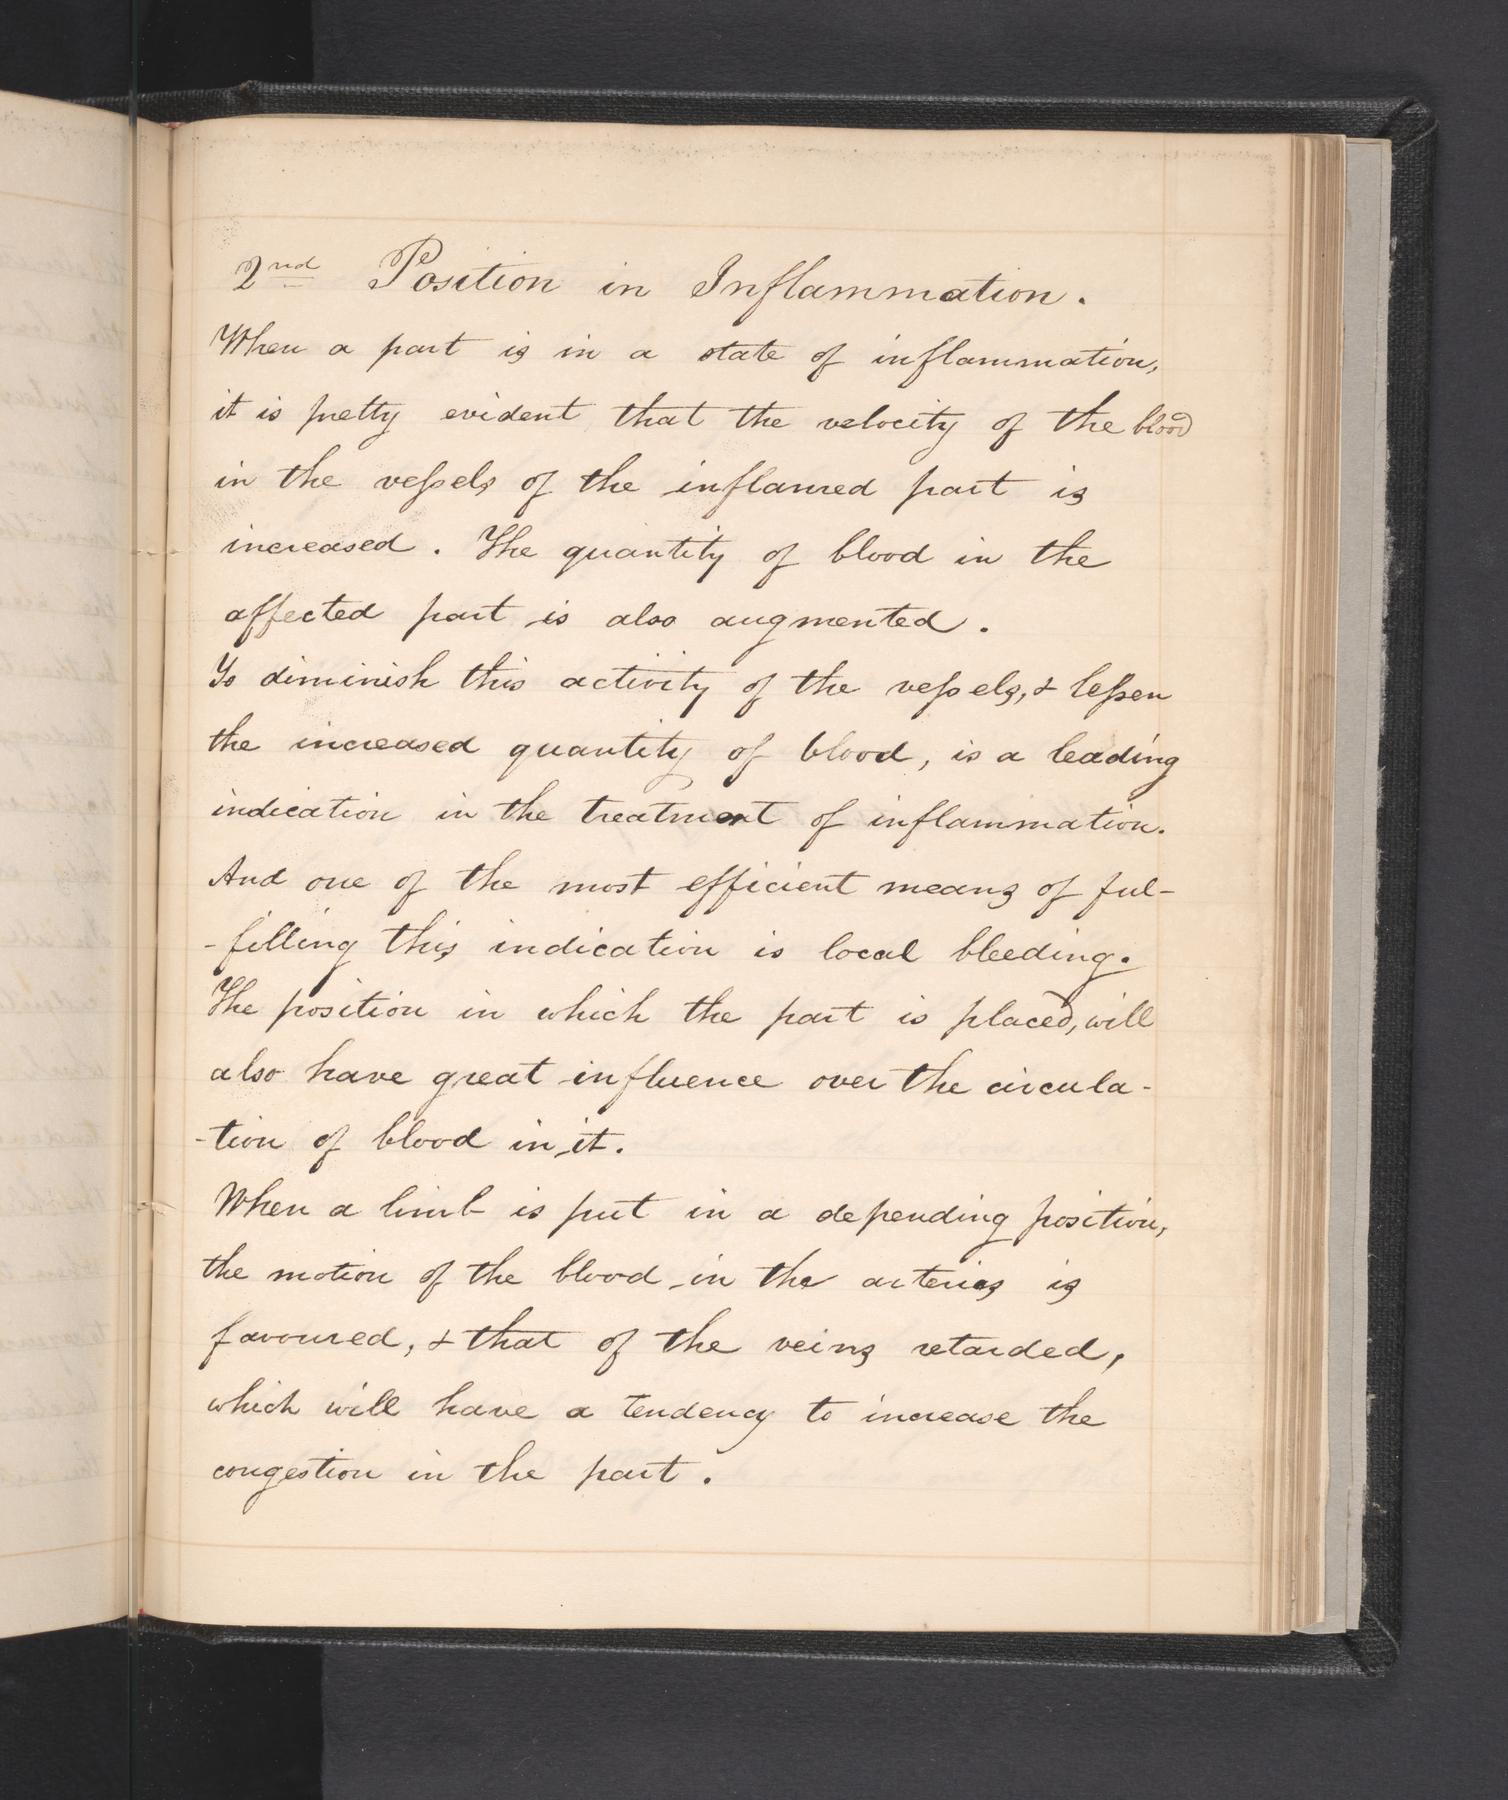 2nd Position in Inflammation.
When a part is in a state of inflammation,
it is pretty evident that the velocity of the blood
in the vessels of the inflamed part is
increased. The quantity of blood in the
affected part is also augmented.
To diminish this activity of the vessels, & lessen
the increased quantity of blood, is a leading
indication in the treatment of inflammation.
And one of the most efficient means of ful-
-filling this indication is local bleeding.
The position in which the part is placed, will
also have great influence over the circula-
-tion of blood in it.
When a limb is put in a depending position,
the motion of the blood in the arteries is
favoured, & that of the veins retarded,
which will have a tendency to increase the
congestion in the part.